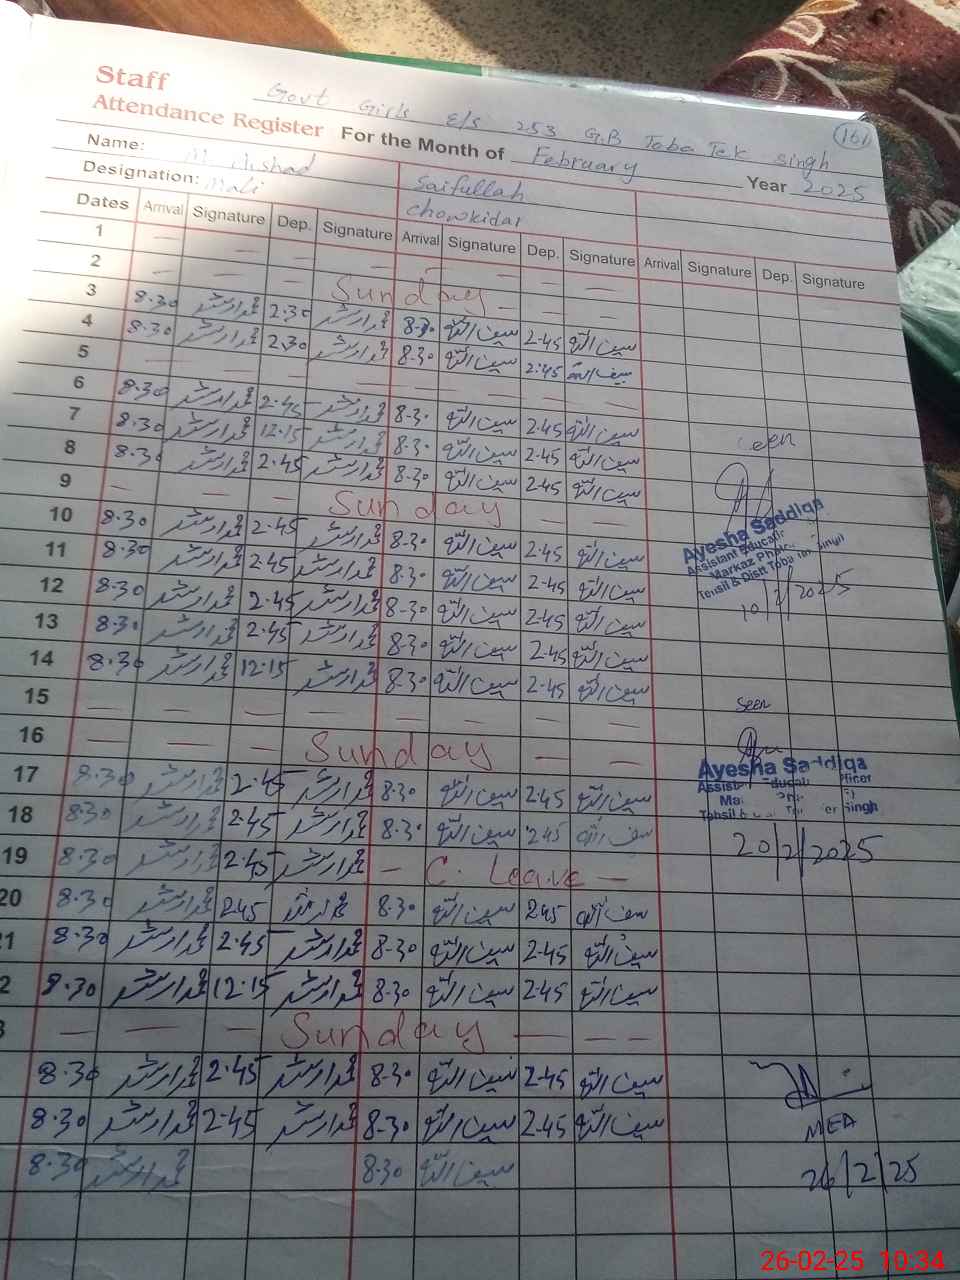 Staff Govt Girls E/S 253 G.B Toba Tek Singh (161)
Attendance Register For the Month of February Year 2025
Name: M. Arshad Saifullah
Designation: Mali Chowkidar
Dates Arrival Signature Dep. Signature Arrival Signature Dep. Signature Arrival Signature Dep. Signature
1 — — — — — — — —
2 — — — Sunday — — —
3 8.30 محمد ارشد 2.30 محمد ارشد 8.30 سیف اللہ 2.45 سیف اللہ
4 8.30 محمد ارشد 2.30 محمد ارشد 8.30 سیف اللہ 2.45 سیف اللہ
5 — — — — — — — —
6 8.30 محمد ارشد 2.45 محمد ارشد 8.30 سیف اللہ 2.45 سیف اللہ
7 8.30 محمد ارشد 12.15 محمد ارشد 8.30 سیف اللہ 2.45 سیف اللہ
8 8.30 محمد ارشد 2.45 محمد ارشد 8.30 سیف اللہ 2.45 سیف اللہ
9 — — — Sunday — —
10 8.30 محمد ارشد 2.45 محمد ارشد 8.30 سیف اللہ 2.45 سیف اللہ
11 8.30 محمد ارشد 2.45 محمد ارشد 8.30 سیف اللہ 2.45 سیف اللہ
12 8.30 محمد ارشد 2.45 محمد ارشد 8-30 سیف اللہ 2.45 سیف اللہ
13 8.30 محمد ارشد 2.45 محمد ارشد 8.30 سیف اللہ 2.45 سیف اللہ
14 8.30 محمد ارشد 12.15 محمد ارشد 8.30 سیف اللہ 2.45 سیف اللہ
15 — — — — — — — —
16 — — — Sunday — —
17 8.30 محمد ارشد 2.45 محمد ارشد 8.30 سیف اللہ 2.45 سیف اللہ
18 8.30 محمد ارشد 2.45 محمد ارشد 8.30 سیف اللہ 2.45 سیف اللہ
19 8.30 محمد ارشد 2.45 محمد ارشد — C. Leave —
20 8.30 محمد ارشد 2.45 محمد ارشد 8.30 سیف اللہ 2.45 سیف اللہ
21 8.30 محمد ارشد 2.45 محمد ارشد 8.30 سیف اللہ 2.45 سیف اللہ
2 8.30 محمد ارشد 12.15 محمد ارشد 8.30 سیف اللہ 2.45 سیف اللہ
3 — — — Sunday — — —
8.30 محمد ارشد 2.45 محمد ارشد 8.30 سیف اللہ 2.45 سیف اللہ
8.30 محمد ارشد 2.45 محمد ارشد 8-30 سیف اللہ 2.45 سیف اللہ
8.30 محمد ارشد 8.30 سیف اللہ
seen
Ayesha Saddiqa
Assistant Educati
Markaz
Tehsil & Distt Toba Tek Singh
10/2/2025
seen
Ayesha Saddiqa
Singh
20/2/2025
MEA
26/2/25
26-02-25 10:34